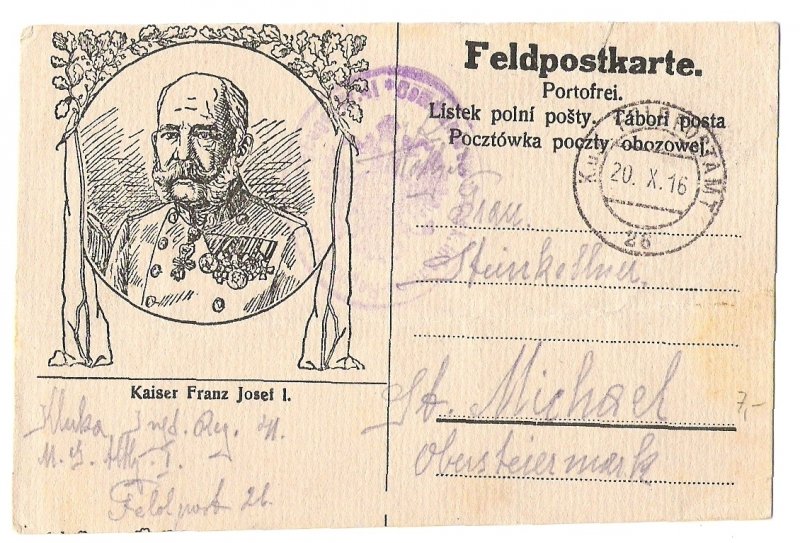 Feldpostkarte.
Portofrei.
Listek polní pošty. Tábori posta
Pocztówka poczty obozowej.
K.u.K. FELDPOSTAMT
20. X. 16
26
Frau
Steinkellner
St. Michael
Obersteiermark
7,-
Kaiser Franz Josef I.
Inf. Reg.
M. G.
Feldpost 26.